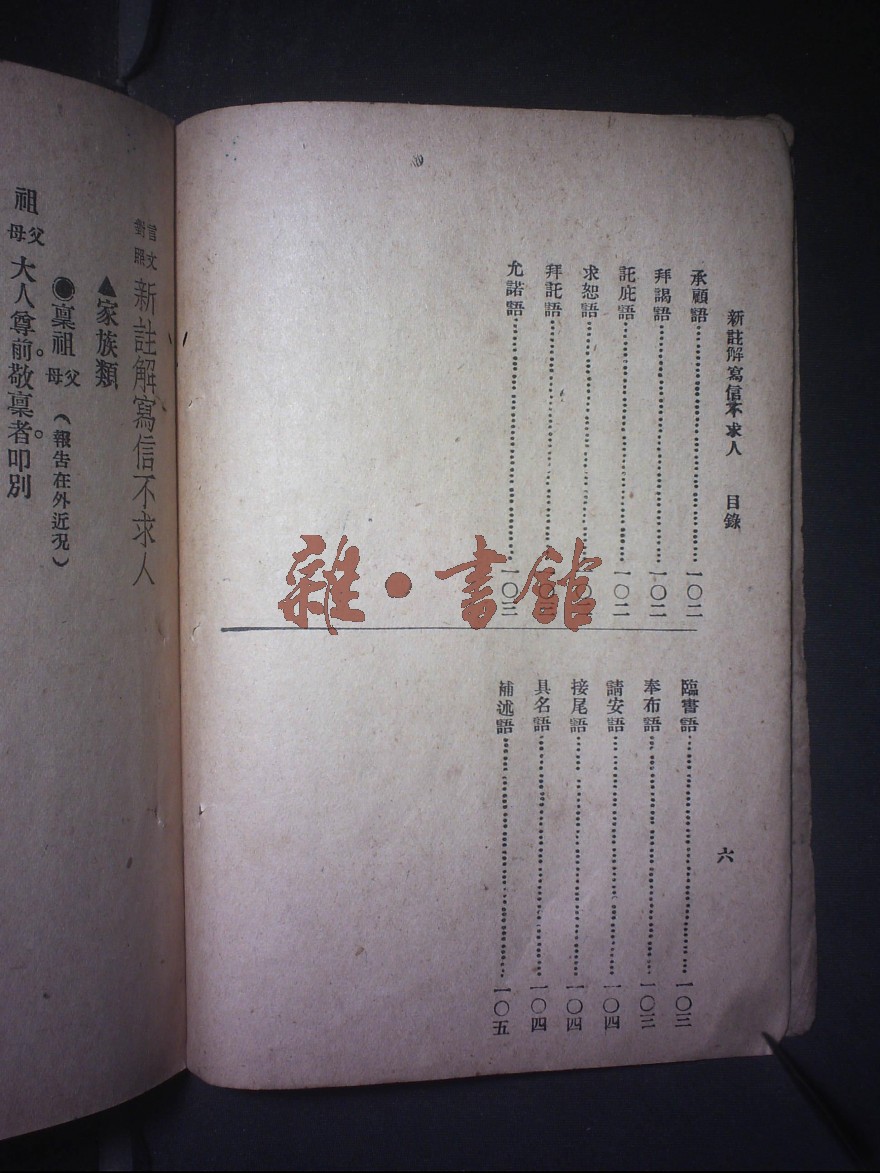 新註解寫信不求人 目錄 六
承顧語 一〇二
拜謁語 一〇二
託庇語 一〇二
求恕語
拜託語
允諾語 一〇三
臨書語 一〇三
奉布語 一〇三
請安語 一〇四
接尾語 一〇四
具名語 一〇四
補述語 一〇五
雜・書館
言文對照 新註解寫信不求人
▲家族類
◉稟祖父母（報告在外近況）
祖父母大人尊前。敬稟者。叩別